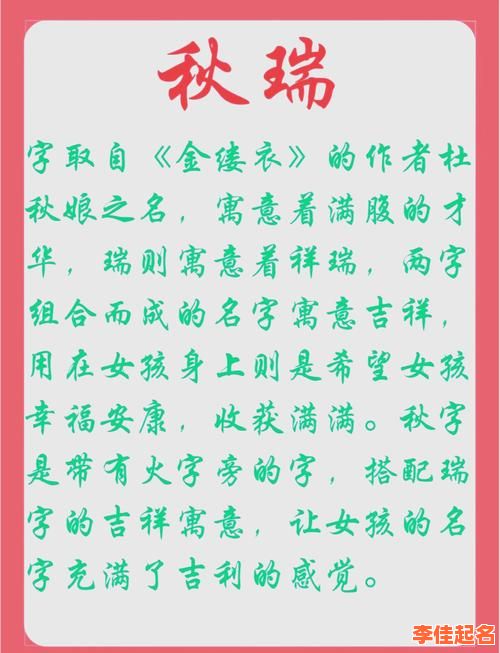 秋瑞
字取自《金缕衣》的作者杜
秋娘之名，寓意着满腹的才
华，瑞则寓意着祥瑞，两字
组合而成的名字寓意吉祥，
用在女孩身上则是希望女孩
幸福安康，收获满满。秋字
是带有火字旁的字，搭配瑞
字的吉祥寓意，让女孩的名
字充满了吉利的感觉。
李佳起名